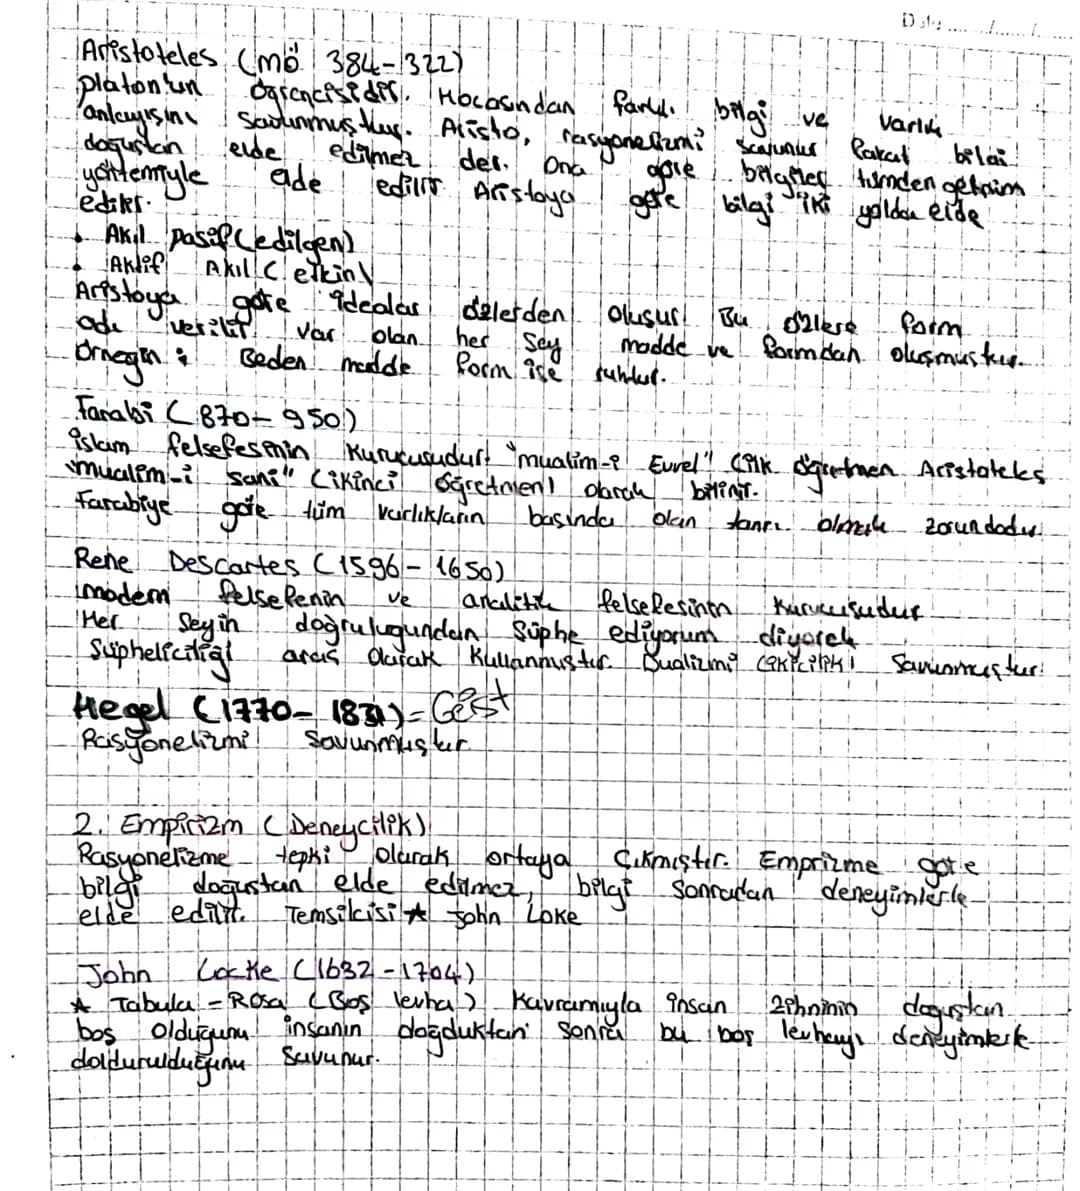 Date ....../....../......
Aristoteles (mö 384-322)
Platon'un öğrencisidir. Hocasından farklı bilgi ve varlık
anlayışını savunmuştur. Aristo, rasyonelizmi savunur fakat bilgi
doğuştan elde edilmez der. Ona göre bilgiler tümden gelim
yöntemiyle elde edilir Aristoya göre bilgi iki yoldan elde
edilir.
• Akıl pasif (edilgen)
• Aktif Akıl (etkin)
Aristoya göre idealar özlerden oluşur. Bu özlere form
adı verilir var olan her şey madde ve formdan oluşmuştur.
Örneğin: Beden madde form ise ruhtur.
Farabi (870-950)
islam felsefesinin kurucusudur. "mualim-i Evvel" (ilk öğretmen Aristoteles
"mualim-i sani" (ikinci öğretmen) olarak bilinir.
Farabiye göre tüm varlıkların başında olan tanrı olmak zorundadır.
Rene Descartes (1596-1650)
modern felsefenin ve analitik felsefesinin kurucusudur
Her Şeyin doğruluğundan Şüphe ediyorum diyerek
Şüpheciliği araç olarak kullanmıştır. Dualizmi (ikicilik) Savunmuştur.
Hegel (1770-1831) = Geist
Rasyonelizmi Savunmuştur
2. Empirizm (Deneycilik)
Rasyonelizme tepki olarak ortaya Çıkmıştır. Emprizme göre
bilgi doğuştan elde edilmez, bilgi sonradan deneyimlerle
elde edilir. Temsilcisi ★ John Loke
John Locke (1632-1704)
★ Tabula-Rosa (Boş levha) kavramıyla insan zihninin doğuştan
boş olduğunu insanın doğduktan sonra bu boş levhayı deneyimlerle
doldurulduğunu Savunur.